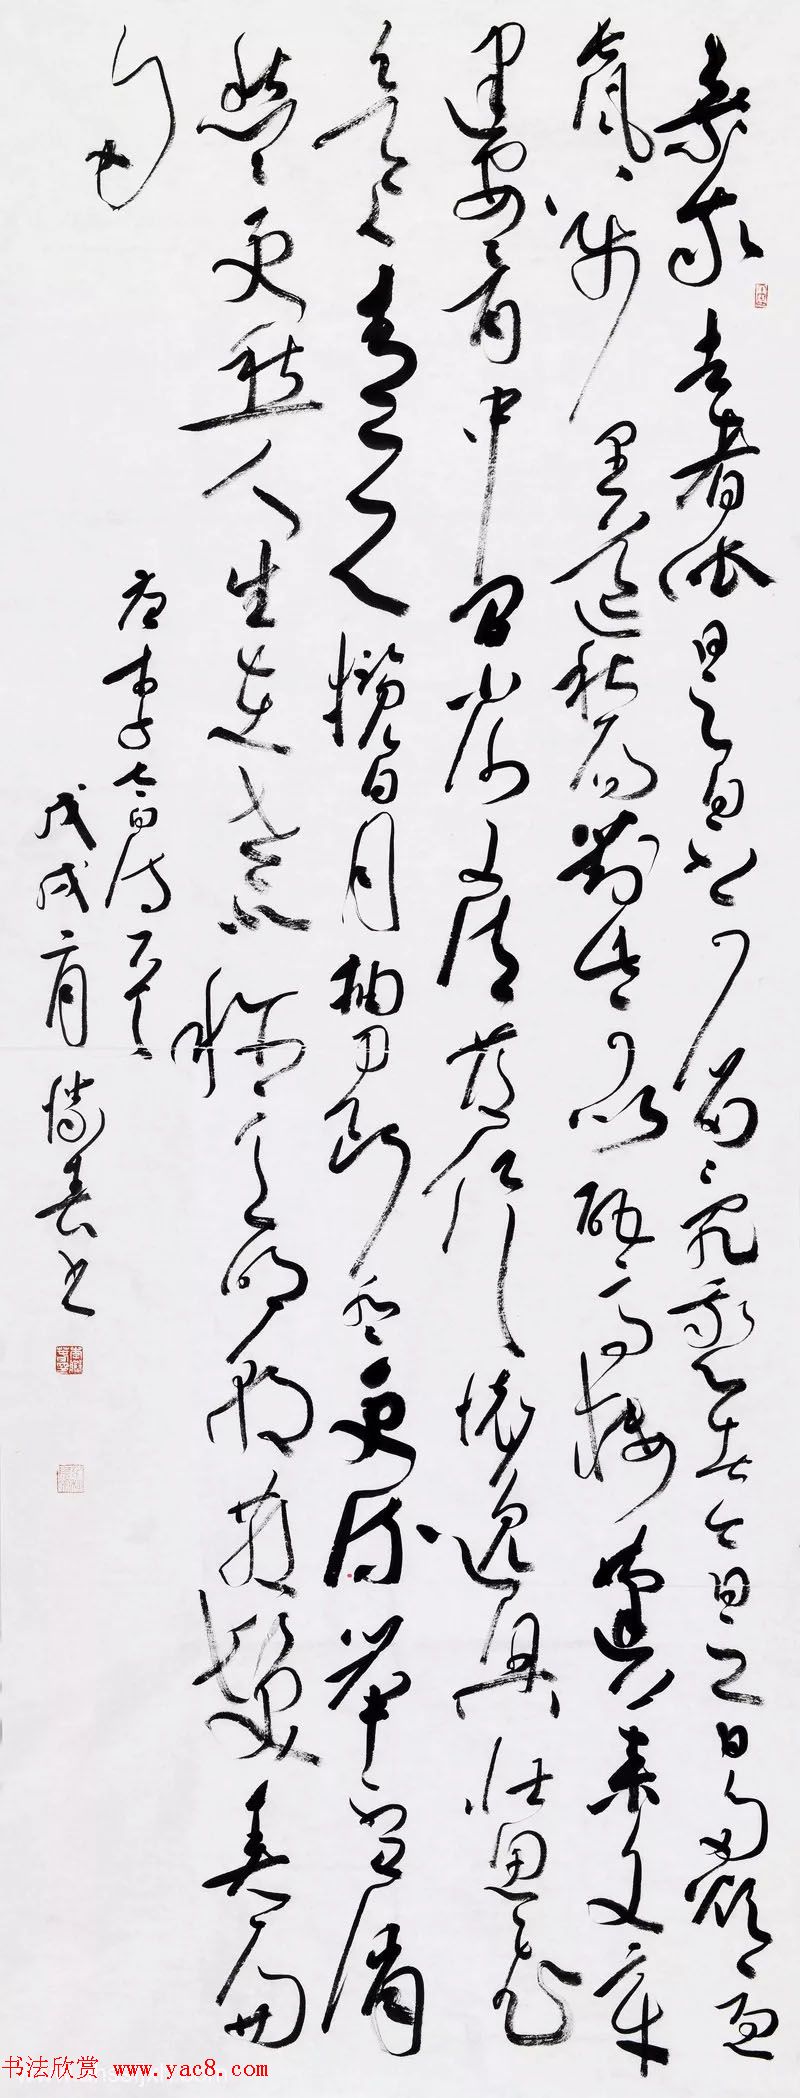 棄我去者昨日之日不可留亂我心者今日之日多煩憂
長風萬里送秋雁對此可以酣高樓蓬萊文章
建安骨中間小謝又清發俱懷逸興壯思飛
欲上青天攬日月抽刀斷水水更流舉杯消
愁愁更愁人生在世不稱意明朝散髮弄扁
舟
唐李白詩一首
戊戌 春書
书法欣赏 www.yac8.com